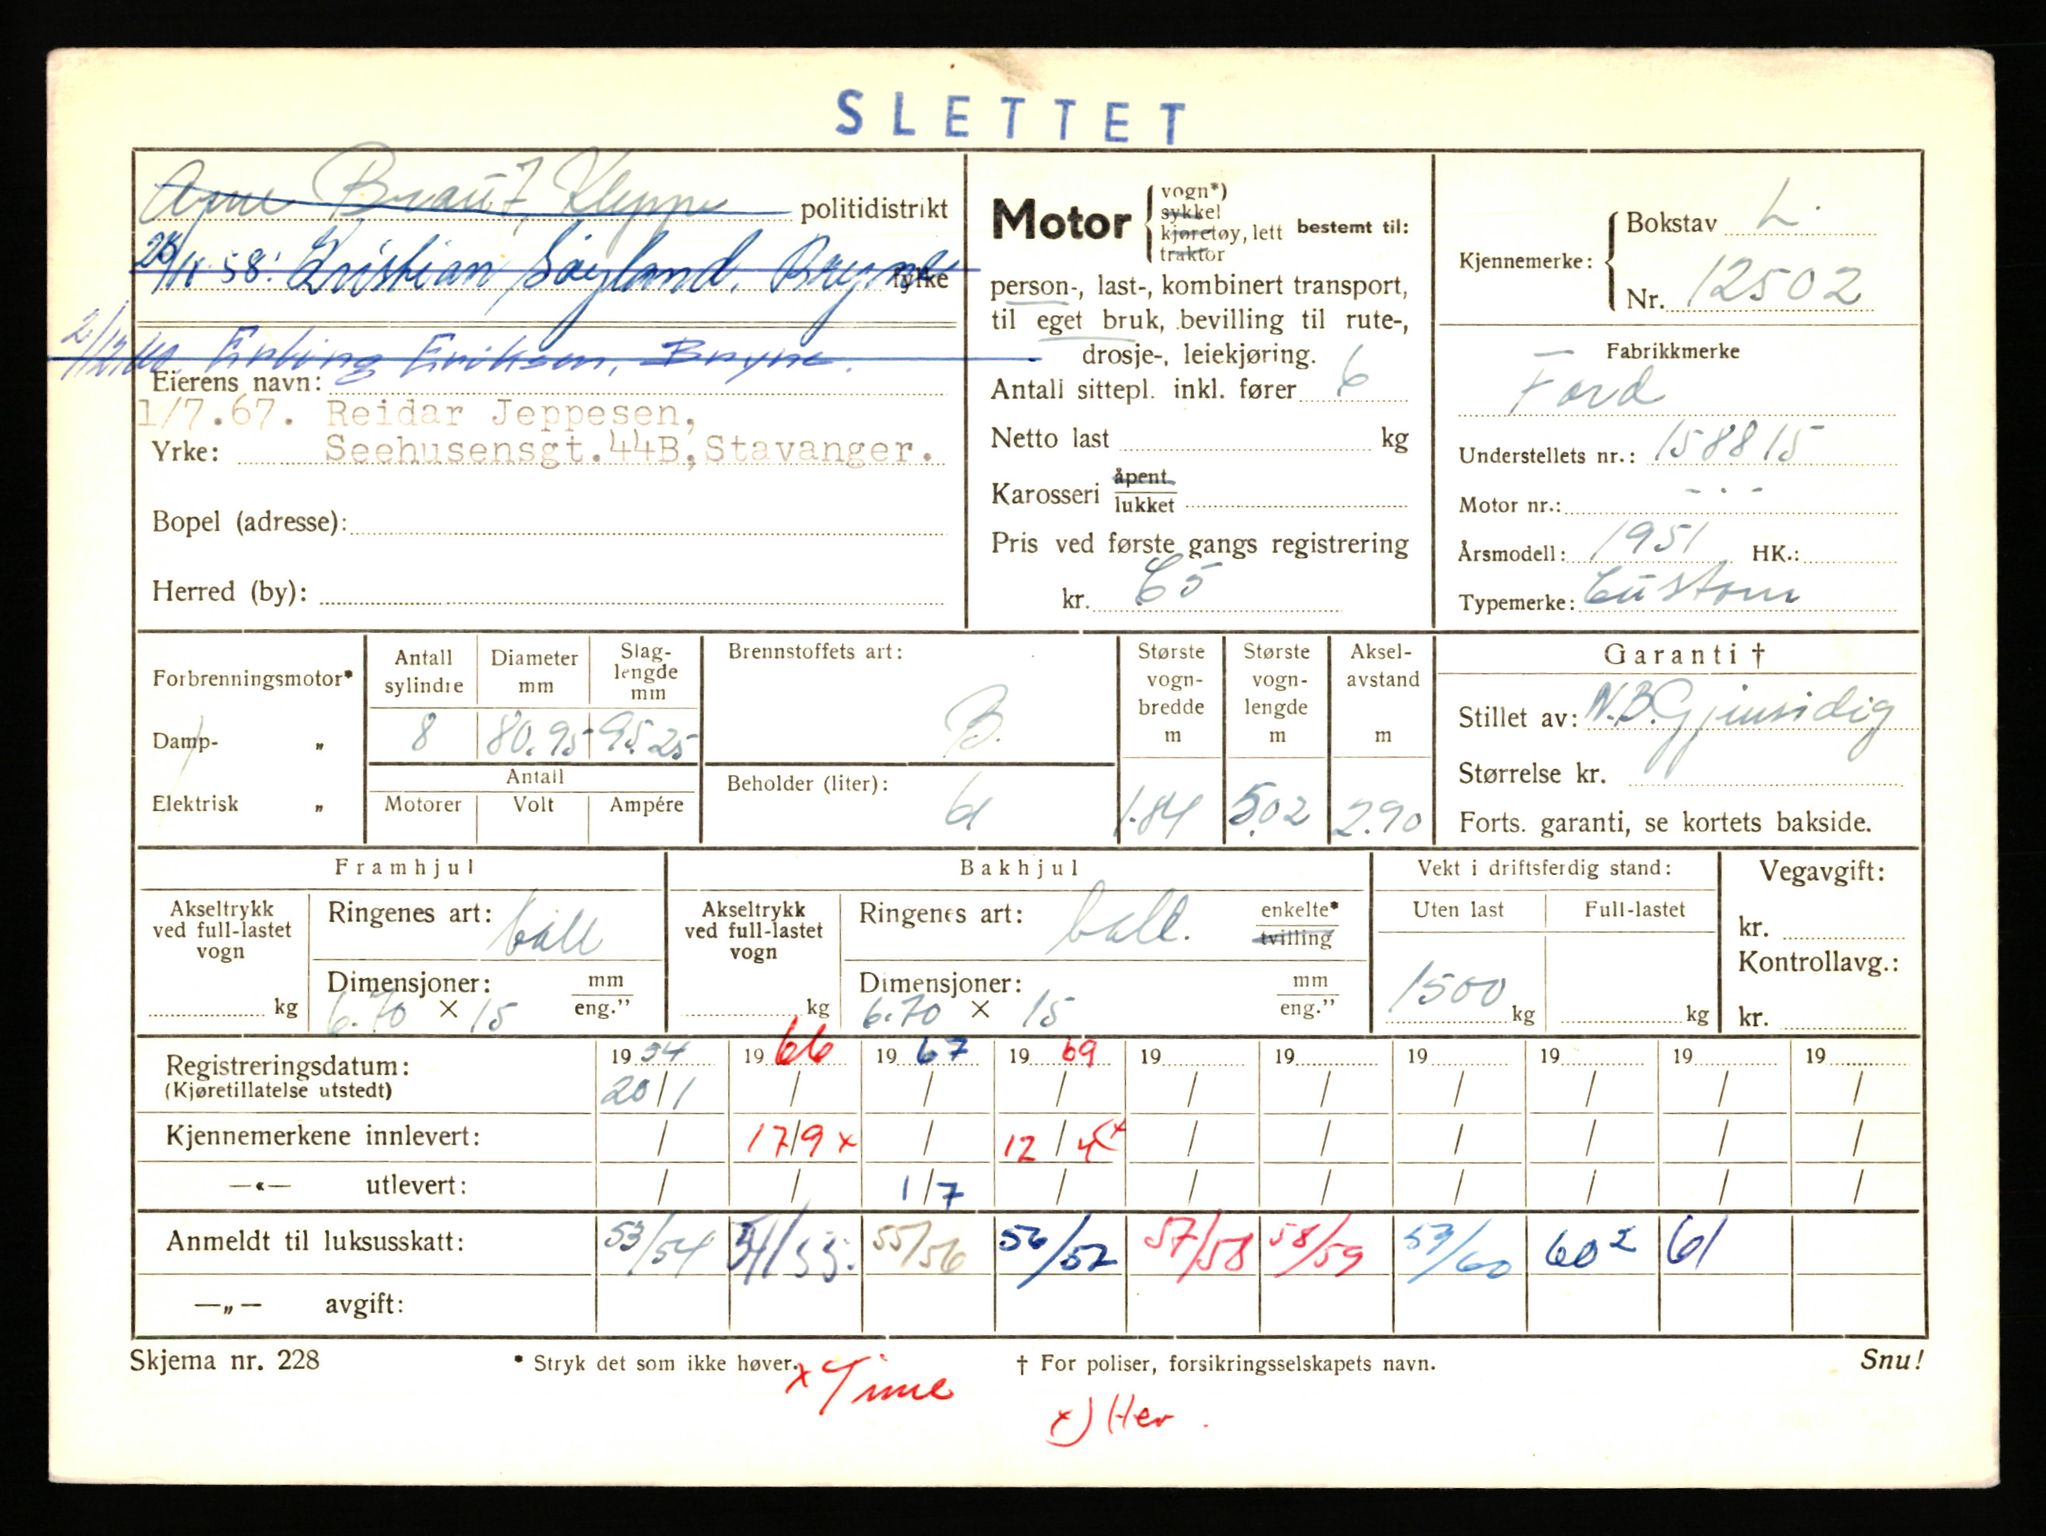 SLETTET
Arne Braut, Kleppe politidistrikt
28/11 58: Kristian Søyland, Bryne fylke
2/12.60 Erling Eriksen, Bryne.
Eierens navn:
1/7.67. Reidar Jeppesen,
Yrke: Seehusensgt.44B, Stavanger.
Bopel (adresse):
Herred (by):
Motor vogn*)
sykkel
kjøretøy, lett bestemt til:
traktor
person-, last-, kombinert transport,
til eget bruk, bevilling til rute-,
drosje-, leiekjøring.
Antall sittepl. inkl. fører 6
Netto last kg
Karosseri åpent
lukket
Pris ved første gangs registrering
kr. C5
Kjennemerke: Bokstav L.
Nr. 12502
Fabrikkmerke
Ford
Understellets nr.: 158815
Motor nr.: - - -
Årsmodell: 1951 HK.:
Typemerke: Custom
Forbrenningsmotor*
Damp- „
Elektrisk „
Antall sylindre Diameter mm Slag-lengde mm
8 80.95 95.25
Antall
Motorer Volt Ampére
Brennstoffets art:
B.
Beholder (liter):
61
Største vogn-bredde m Største vogn-lengde m Aksel-avstand m
1.84 5.02 2.90
Garanti †
Stillet av: N.B. Gjensidig
Størrelse kr.
Forts. garanti, se kortets bakside.
Framhjul Bakhjul Vekt i driftsferdig stand: Vegavgift:
Akseltrykk ved full-lastet vogn Ringenes art: ball
kg Dimensjoner: mm
6.70 × 15 eng."
Akseltrykk ved full-lastet vogn Ringenes art: ball. enkelte*
tvilling
kg Dimensjoner: mm
6.70 × 15 eng."
Uten last Full-lastet
1500 kg kg
kr.
Kontrollavg.:
kr.
Registreringsdatum: 19 54 19 66 19 67 19 69 19 19 19 19 19 19
(Kjøretillatelse utstedt) 20/1 / / / / / / / / /
Kjennemerkene innlevert: / 17/9 x / 12/4 x / / / / / /
—«— utlevert: / / 1/7 / / / / / / /
Anmeldt til luksusskatt: 53/54 54/55. 55/56 56/57 57/58 58/59 59/60 60² 61
—„— avgift:
Skjema nr. 228 * Stryk det som ikke høver. † For poliser, forsikringsselskapets navn. Snu!
x Time
x) Her.